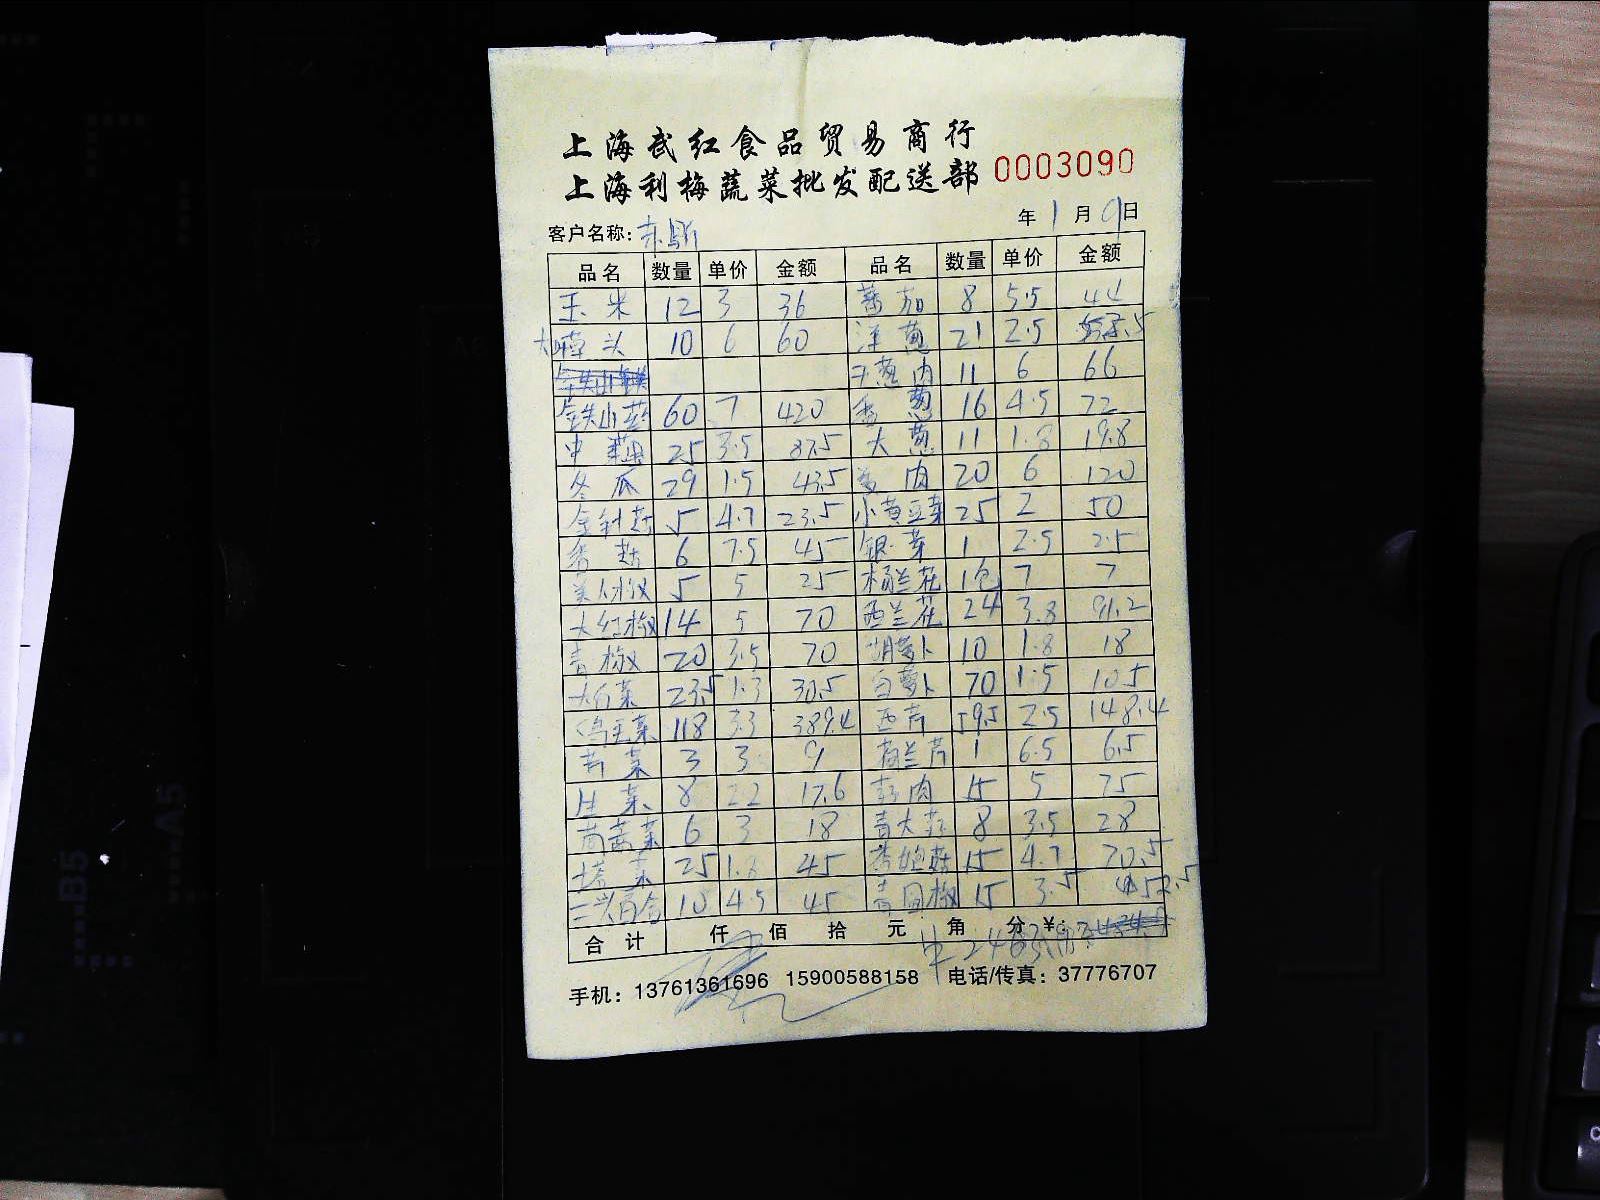 上海武红食品贸易商行
上海利梅蔬菜批发配送部 0003090
年1月9日
客户名称:
品名 数量 单价 金额 品名 数量 单价 金额
玉米 12 3 36 番茄 8 5.5 44
10 6 60 洋葱 21 2.5
11 6 66
铁山药 60 7 420 香葱 16 4.5 72
25 3.5 87.5 大葱 11 1.8 19.8
冬瓜 29 1.5 43.5 姜肉 20 6 120
金针菇 5 4.7 23.5 小黄豆芽 25 2 50
香菇 6 7.5 45 银芽 1 2.5 2.5
美人椒 5 5 25 杨兰花 1包 7 7
大红椒 14 5 70 西兰花 24 3.8 91.2
青椒 20 3.5 70 胡萝卜 10 1.8 18
大白菜 23.5 1.3 30.5 白萝卜 70 1.5 105
鸡毛菜 118 3.3 389.4 西芹 59.5 2.5 148.4
芹菜 3 3 9 荷兰芹 1 6.5 6.5
生菜 8 2.2 17.6 肉 15 5 75
茼蒿菜 6 3 18 青大蒜 8 3.5 28
塔菜 25 1.8 45 杏鲍菇 15 4.7 70.5
兰州百合 10 4.5 45 青圆椒 15 3.5 52.5
合计 仟 佰 拾 元 角 分 ¥:
手机:13761361696 15900588158 电话/传真:37776707